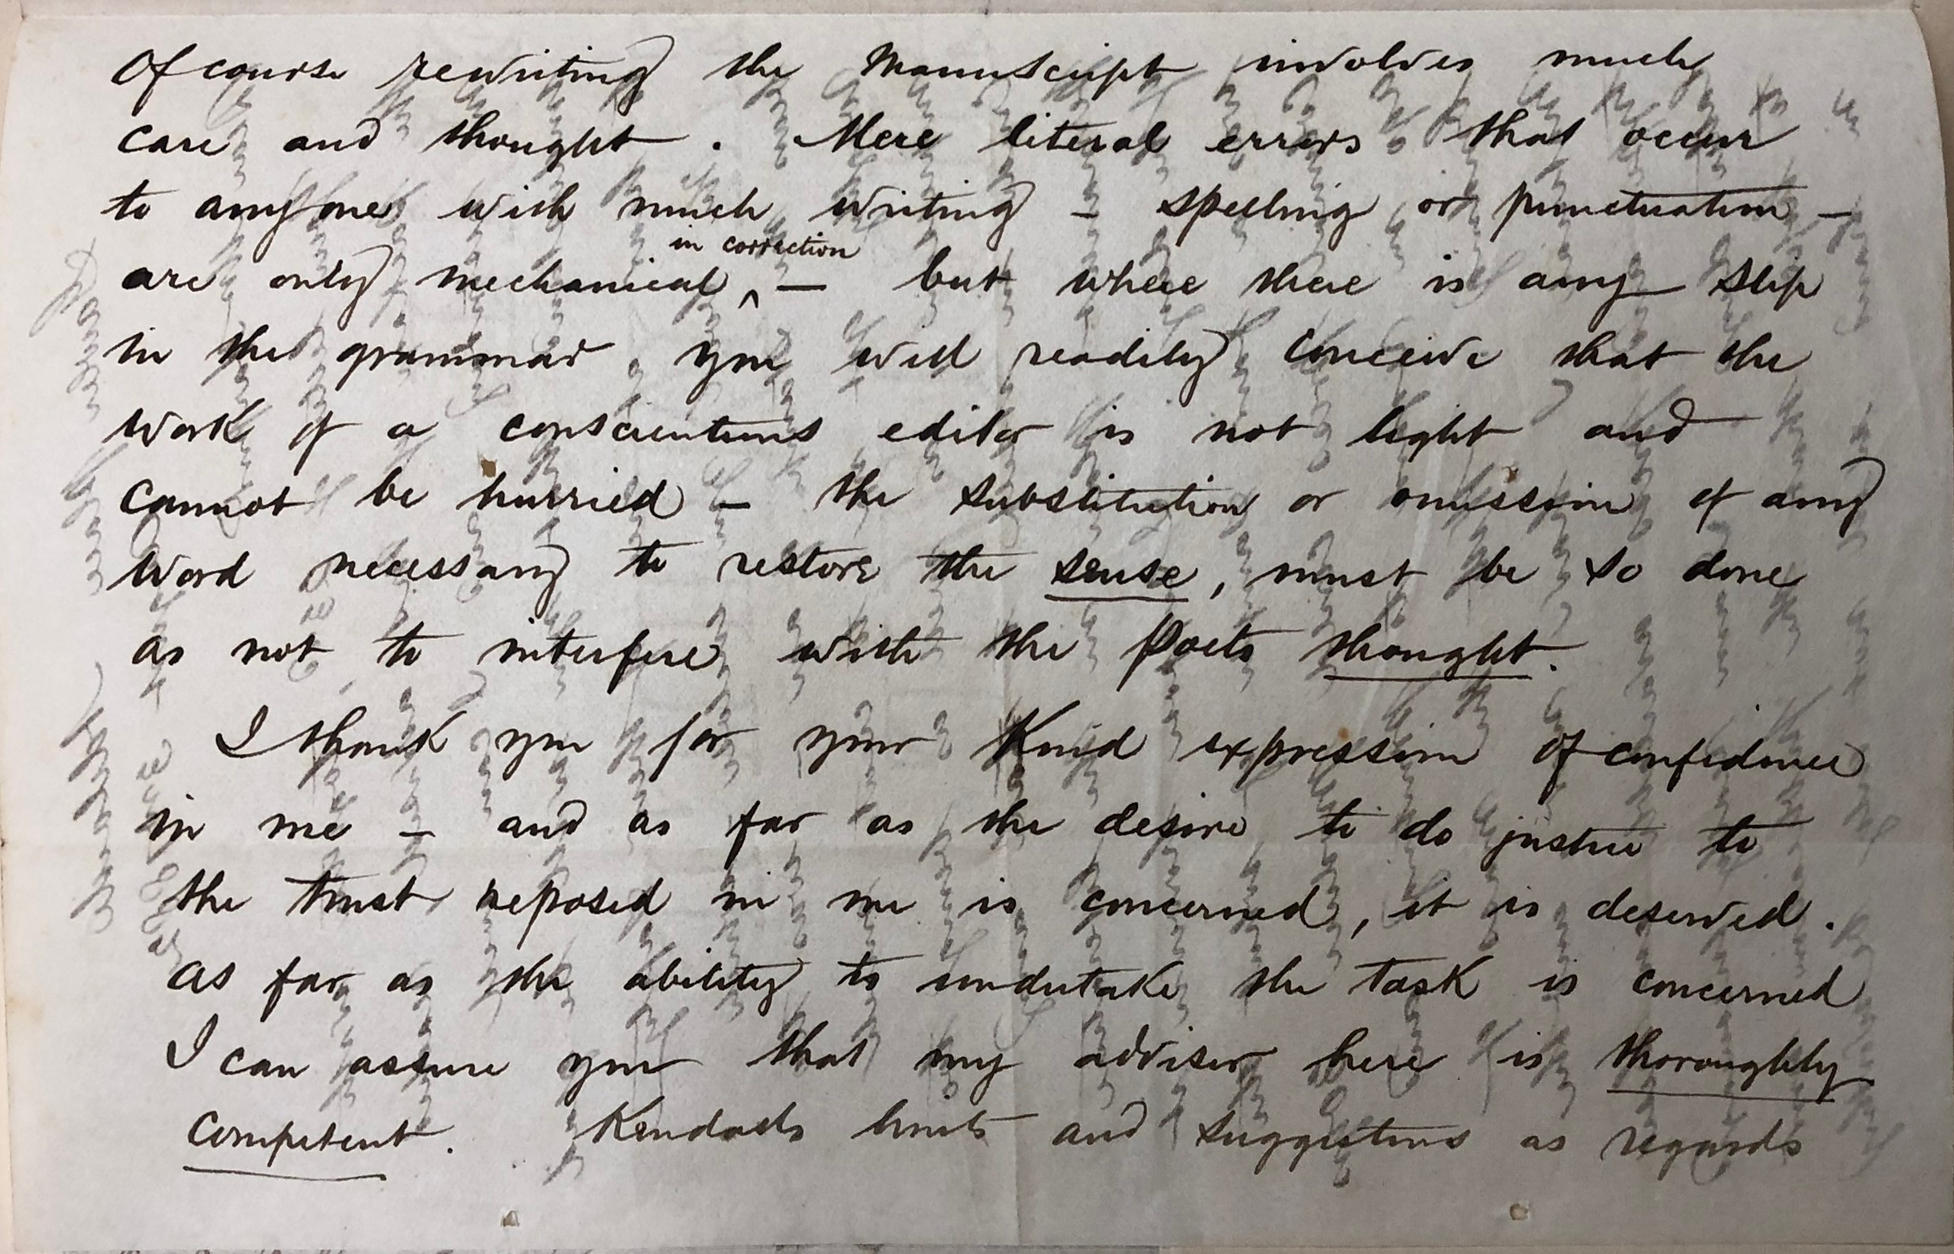 Of course rewriting the Manuscript involves much
care and thought. Mere literal errors that occur
to anyone with much writing – spelling or punctuation –
in correction
are only mechanical ^ – but where there is any slip
in the grammar you will readily conceive that the
work of a conscientious editor is not light and
cannot be hurried – the substitution or omission of any
word necessary to restore the sense, must be so done
as not to interfere with the Poets thought.
I thank you for your Kind expression of confidence
in me – and as far as the desire to do justice to
the trust reposed in me is concerned, it is deserved.
as far as the ability to undertake the task is concerned
I can assure you that my adviser here is thoroughly
competent. Kendals hints and suggestions as regards